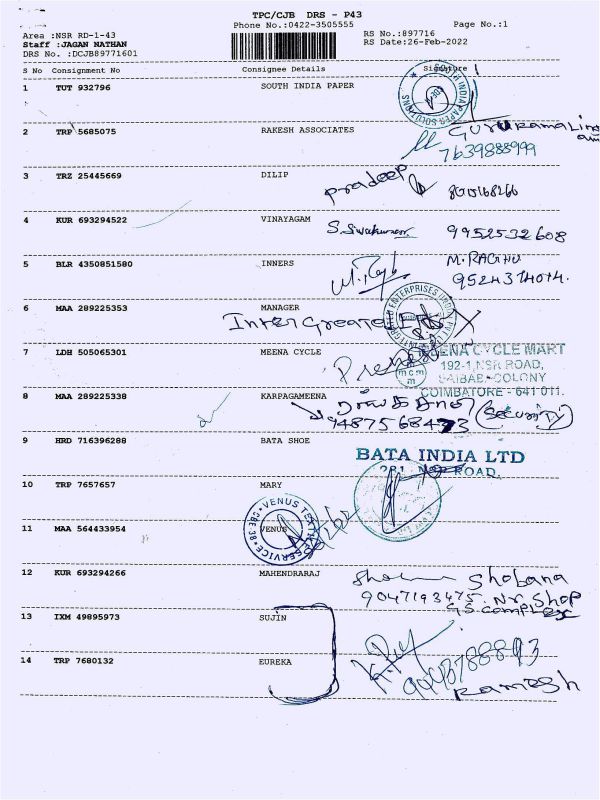 TPC/CJB DRS - P43
Phone No.:0422-3505555 Page No.:1
Area :NSR RD-1-43 RS No.:897716
Staff :JAGAN NATHAN RS Date:26-Feb-2022
DRS No. :DCJB89771601
S No Consignment No Consignee Details Signature
1 TUT 932796 SOUTH INDIA PAPER
2 TRP 5685075 RAKESH ASSOCIATES
7639888999
3 TRZ 25445669 DILIP pradeep
4 KUR 693294522 VINAYAGAM 9952532608
5 BLR 4350851580 INNERS M. RAGHU
6 MAA 289225353 MANAGER
7 LDH 505065301 MEENA CYCLE MEENA CYCLE MART
192-1, NSR ROAD,
SAIBABA COLONY
COIMBATORE - 641 011.
8 MAA 289225338 KARPAGAMEENA (Security)
9 HRD 716396288 BATA SHOE
BATA INDIA LTD
281, NSR ROAD.
10 TRP 7657657 MARY
11 MAA 564433954 VENUS
12 KUR 693294266 MAHENDRARAJ Shobana
9047193475. Nr. Shop
G.S. complex
13 IXM 49895973 SUJIN
14 TRP 7680132 EUREKA
Ramesh